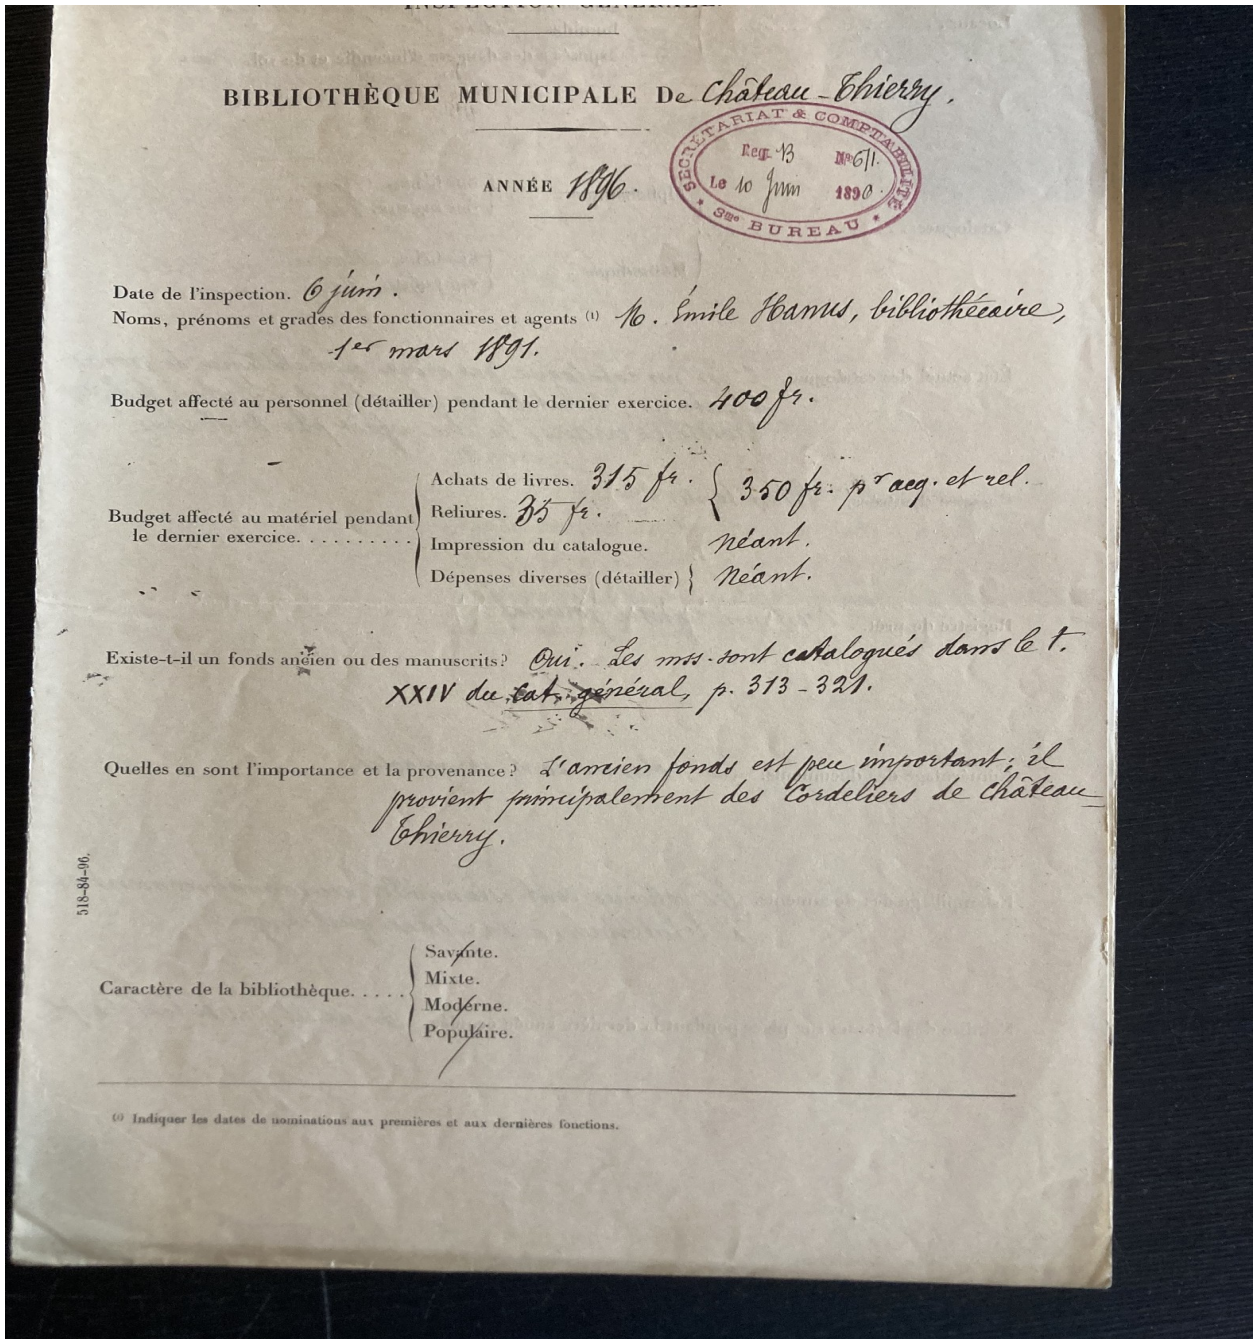 INSPECTION GÉNÉRALE.
BIBLIOTHÈQUE MUNICIPALE De Château-Thierry.
SECRÉTARIAT & COMPTABILITÉ
Reg. B No 611.
Le 10 Juin 1890.
* 3me BUREAU *
ANNÉE 1896.
Date de l'inspection. 6 juin.
Noms, prénoms et grades des fonctionnaires et agents (1) M. Émile Hanus, bibliothécaire,
1er mars 1891.
Budget affecté au personnel (détailler) pendant le dernier exercice. 400 fr.
Budget affecté au matériel pendant
le dernier exercice. . . . . . . . . .
Achats de livres. 315 fr. { 350 fr. pr acq. et rel.
Reliures. 35 fr.
Impression du catalogue. néant.
Dépenses diverses (détailler) } Néant.
Existe-t-il un fonds ancien ou des manuscrits? Oui. Les mss. sont catalogués dans le t.
XXIV du cat. général, p. 313-321.
Quelles en sont l'importance et la provenance? L'ancien fonds est peu important; il
provient principalement des Cordeliers de Château-
Thierry.
518-84-96.
Caractère de la bibliothèque. . . . .
Savante.
Mixte.
Moderne.
Populaire.
(1) Indiquer les dates de nominations aux premières et aux dernières fonctions.